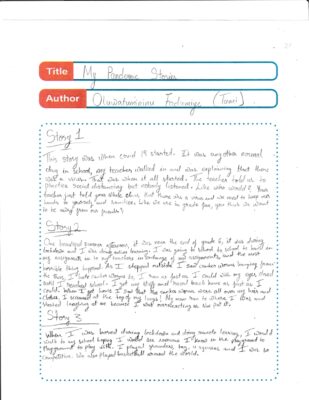 Title My Pandemic Stories
Author Oluwatunininu (Tomi)
Story 1
This story was when covid 19 started. It was another normal
day in school, my teacher walked in and was explaining that there
was a virus. That was when it all started. The teacher told us to
practice social distancing but nobody listened. Like who would? Your
teacher just told your whole class that there is a virus and we need to keep our
hands to yourself and sanitize. Like we are in grade five, you think we want
to be away from our friends?
Story 2
One beautiful summer afternoon, it was near the end of grade 6, it was during
lockdown and I was doing online learning. I was going to school to hand in
my assignments as in my notebooks in exchange of new assignments, and the most
horrible thing happened. As I stepped outside I saw canker worms hanging from
the trees. I hate canker worms so I ran as fast as I could with my eyes closed
until I reached school. I got my stuff and raced back home as fast as I
could. When I got home I saw that the canker worms were all over my hair and
clothes. I screamed at the top of my lungs! My mom ran to where I was and
started laughing at me because I was overreacting as she put it.
Story 3
When I was bored during lockdown and doing remote learning, I would
walk to my school hoping I would see someone I knew in the playground to
playground to play with. I played grounders, tag, and I was so
competitive. We also played basketball around the world.